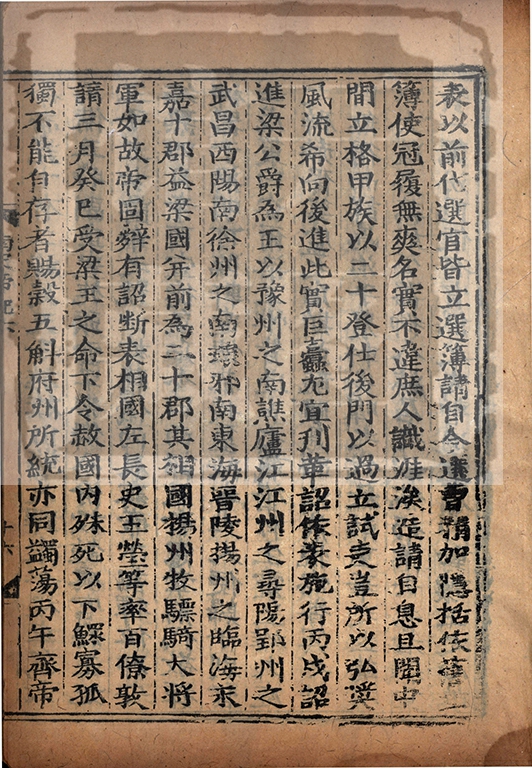 表以前代選官皆立選簿請自今選曹精加隱括依舊立
簿使冠履無爽名實不違庶人識涯涘造請自息且聞中
間立格甲族以二十登仕後門以過立試吏豈所以弘獎
風流希向後進此實巨蠹尤宜刊革詔依表施行丙戌詔
進梁公爵為王以豫州之南譙廬江江州之尋陽郢州之
武昌西陽南徐州之南琅邪南東海晉陵揚州之臨海永
嘉十郡益梁國并前為二十郡其相國揚州牧驃騎大將
軍如故帝固辭有詔斷表相國左長史王瑩等率百僚敦
請三月癸巳受梁王之命下令赦國內殊死以下鰥寡孤
獨不能自存者賜穀五斛府州所統亦同蠲蕩丙午齊帝
十六